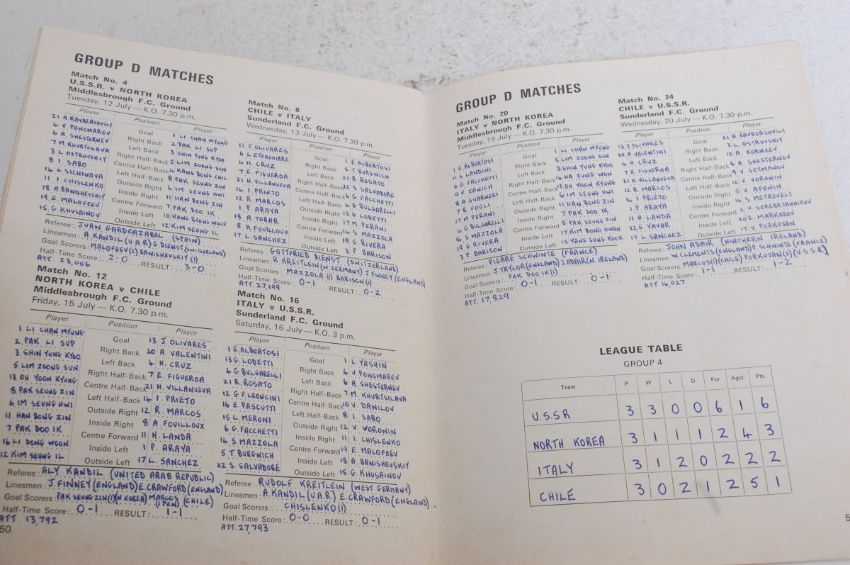 GROUP D MATCHES
Match No. 4
U.S.S.R. v NORTH KOREA
Middlesbrough F.C. Ground
Tuesday, 12 July — K.O. 7.30 p.m.
Player Position Player
21 A. KAVAZASHVILI Goal 1 LI CHAN MYUNG
4 V PONOMAREV Right Back 2 PAK LI SUP
6 A. SHESTERNEV Left Back 3 SHIN YUNG KYOO
7 M. KHURTSILAVA Right Half-Back
3 L. OSTROVSKIY Centre Half-Back
8 I. SABO Left Half-Back 8 PAK SEUNG ZIN
Outside Right
11 I. CHISLENKO Inside Right
18 A BANISHEVSKIY Centre Forward
19 E. MALOFEEV Inside Left
15 G. KHUSAINOV Outside Left
Referee: JUAN GARDEAZABAL (SPAIN)
Linesmen: A. KANDIL (U.A.R) G DIENST (SWITZERLAND)
Goal Scorers: MALOFEEV (2) BANISHEVSKIY (1)
Half-Time Score: 2-0 RESULT: 3-0
ATT 23,006
Match No. 12
NORTH KOREA v CHILE
Middlesbrough F.C. Ground
Friday, 15 July — K.O. 7.30 p.m.
Player Position Player
1 LI CHAN MYUNG Goal 13 J. OLIVARES
2 PAK LI SUP Right Back 20 A. VALENTINI
3 SHIN YUNG KYOO Left Back 4 H. CRUZ
5 LIM ZOONG SUN Right Half-Back 7 E. FIGUEROA
13 OH YOON KYUNG Centre Half-Back 21 H. VILLANUEVA
8 PAK SEUNG ZIN Left Half-Back 14 I. PRIETO
6 IM SEUNG HWI Outside Right 12 R. MARCOS
11 HAN BONG ZIN Inside Right 8 A. FOUILLOUX
7 PAK DOO IK Centre Forward 11 H. LANDA
16 LI DONG WOON Inside Left 1 P. ARAYA
12 KIM SEUNG IL Outside Left 17 L. SANCHEZ
Referee: ALY KANDIL (UNITED ARAB REPUBLIC)
Linesmen: J. FINNEY (ENGLAND) E. CRAWFORD (ENGLAND)
Goal Scorers: PAK SEUNG ZIN (1) (N KOREA) MARCOS (1 PEN) (CHILE)
Half-Time Score: 0-1 RESULT: 1-1
ATT. 13,792
50
Match No. 8
CHILE v ITALY
Sunderland F.C. Ground
Wednesday, 13 July — K.O. 7.30 p.m.
Player Position Player
13 J. OLIVARES Goal 1 E. ALBERTOSI
6 L. EYZAGUIRRE Right Back 5 T. BURGNICH
4 H. CRUZ Left Back 21 R. ROSATO
7 E. FIGUEROA Right Half-Back 22 S. SALVADORE
21 H. VILLANUEVA Centre Half-Back 6 G. FACCHETTI
14 I. PRIETO Left Half-Back 8 G. BULGARELLI
12 R. MARCOS Outside Right 13 G. LODETTI
1 P. ARAYA Inside Right 17 M. PERANI
18 A. TOBAR Centre Forward 16 S. MAZZOLA
8 A. FOUILLOUX Inside Left 19 G. RIVERA
17 L. SANCHEZ Outside Left 3 P. BARISON
Referee: GOTTFRIED DIENST (SWITZERLAND)
Linesmen: R. KREITLEIN (W GERMANY) J. FINNEY (ENGLAND)
Goal Scorers: MAZZOLA (1) BARISON (1)
Half-Time Score: 0-1 RESULT: 0-2
ATT 27,199
Match No. 16
ITALY v U.S.S.R.
Sunderland F.C. Ground
Saturday, 16 July — K.O. 3 p.m.
Player Position Player
1 E. ALBERTOSI Goal 1 L YASHIN
13 G. LODETTI Right Back 4 V PONOMAREV
8 G BULGARELLI Left Back 6 A. SHESTERNEV
21 R. ROSATO Right Half-Back 7 M. KHURTSILAVA
12 G. F. LEONCINI Centre Half-Back 10 V. DANILOV
14 E PASCUTTI Left Half-Back 8 I SABO
15 L. MERONI Outside Right 12 V VORONIN
6 G. FACCHETTI Inside Right 11 I CHISLENKO
16 S. MAZZOLA Centre Forward 19 E. MALOFEEV
5 T. BURGNICH Inside Left 18 A. BANISHEVSKIY
22 S. SALVADORE Outside Left 15 G. KHUSAINOV
Referee: RUDOLF KREITLEIN (WEST GERMANY)
Linesmen: A KANDIL (U.A.R) E. CRAWFORD (ENGLAND)
Goal Scorers: CHISLENKO (1)
Half-Time Score: 0-0 RESULT: 0-1
ATT. 27,793
GROUP D MATCHES
Match No. 20
ITALY v NORTH KOREA
Middlesbrough F.C. Ground
Tuesday, 19 July — K.O. 7.30 p.m.
Player Position Player
1 E. ALBERTOSI Goal 1 LI CHAN MYUNG
S. LANDINI Right Back 5 LIM ZOONG SUN
6 G. FACCHETTI Left Back 3 SHIN YUNG KYOO
F. JANICH Centre Half-Back
A GUARNERI Left Half-Back
R. FOGLI
17 M. PERANI 11 HAN BONG ZIN
8 G. BULGARELLI Inside Right 7 PAK DOO IK
16 S. MAZZOLA Centre Forward 8 PAK SEUNG ZIN
19 G. RIVERA Inside Left
3 P BARISON Outside Left
Referee: PIERRE SCHWINTE (FRANCE)
Linesmen: J. TAYLOR (ENGLAND) J. ADAIR (N IRELAND)
Goal Scorers: PAK DOO IK (1)
Half-Time Score: 0-1 RESULT: 0-1
ATT. 17,829
Match No. 24
CHILE v U.S.S.R.
Sunderland F.C. Ground
Wednesday, 20 July — K.O. 7.30 p.m.
Player Position Player
13 J. OLIVARES Goal 21 A. KAVAZASHVILI
20 A. VALENTINI Right Back 3 L. OSTROVSKIY
4 H. CRUZ Left Back 9 V. KORNEEV
7 E. FIGUEROA Right Half-Back 6 A. SHESTERNEV
21 H. VILLANUEVA Centre Half-Back
12 R. MARCOS Left Half-Back 12 V. VORONIN
14 I PRIETO Outside Right
1 P. ARAYA Inside Right 14 S. METREVELI
11 H. LANDA Centre Forward
22 G. YAVAR Inside Left E. MARKAROV
17 L. SANCHEZ Outside Left 17 V. PORKUJAN
Referee: JOHN ADAIR (NORTHERN IRELAND)
Linesmen: W. CLEMENTS (ENGLAND) P SCHWINTE (FRANCE)
Goal Scorers: MARCOS (1) (CHILE) PORKUSAN (2) (U.S.S.R)
Half-Time Score: 1-1 RESULT: 1-2
ATT 16,027
LEAGUE TABLE
GROUP 4
Team P W L D For Agst Pts.
U.S.S.R 3 3 0 0 6 1 6
NORTH KOREA 3 1 1 1 2 4 3
ITALY 3 1 2 0 2 2 2
CHILE 3 0 2 1 2 5 1